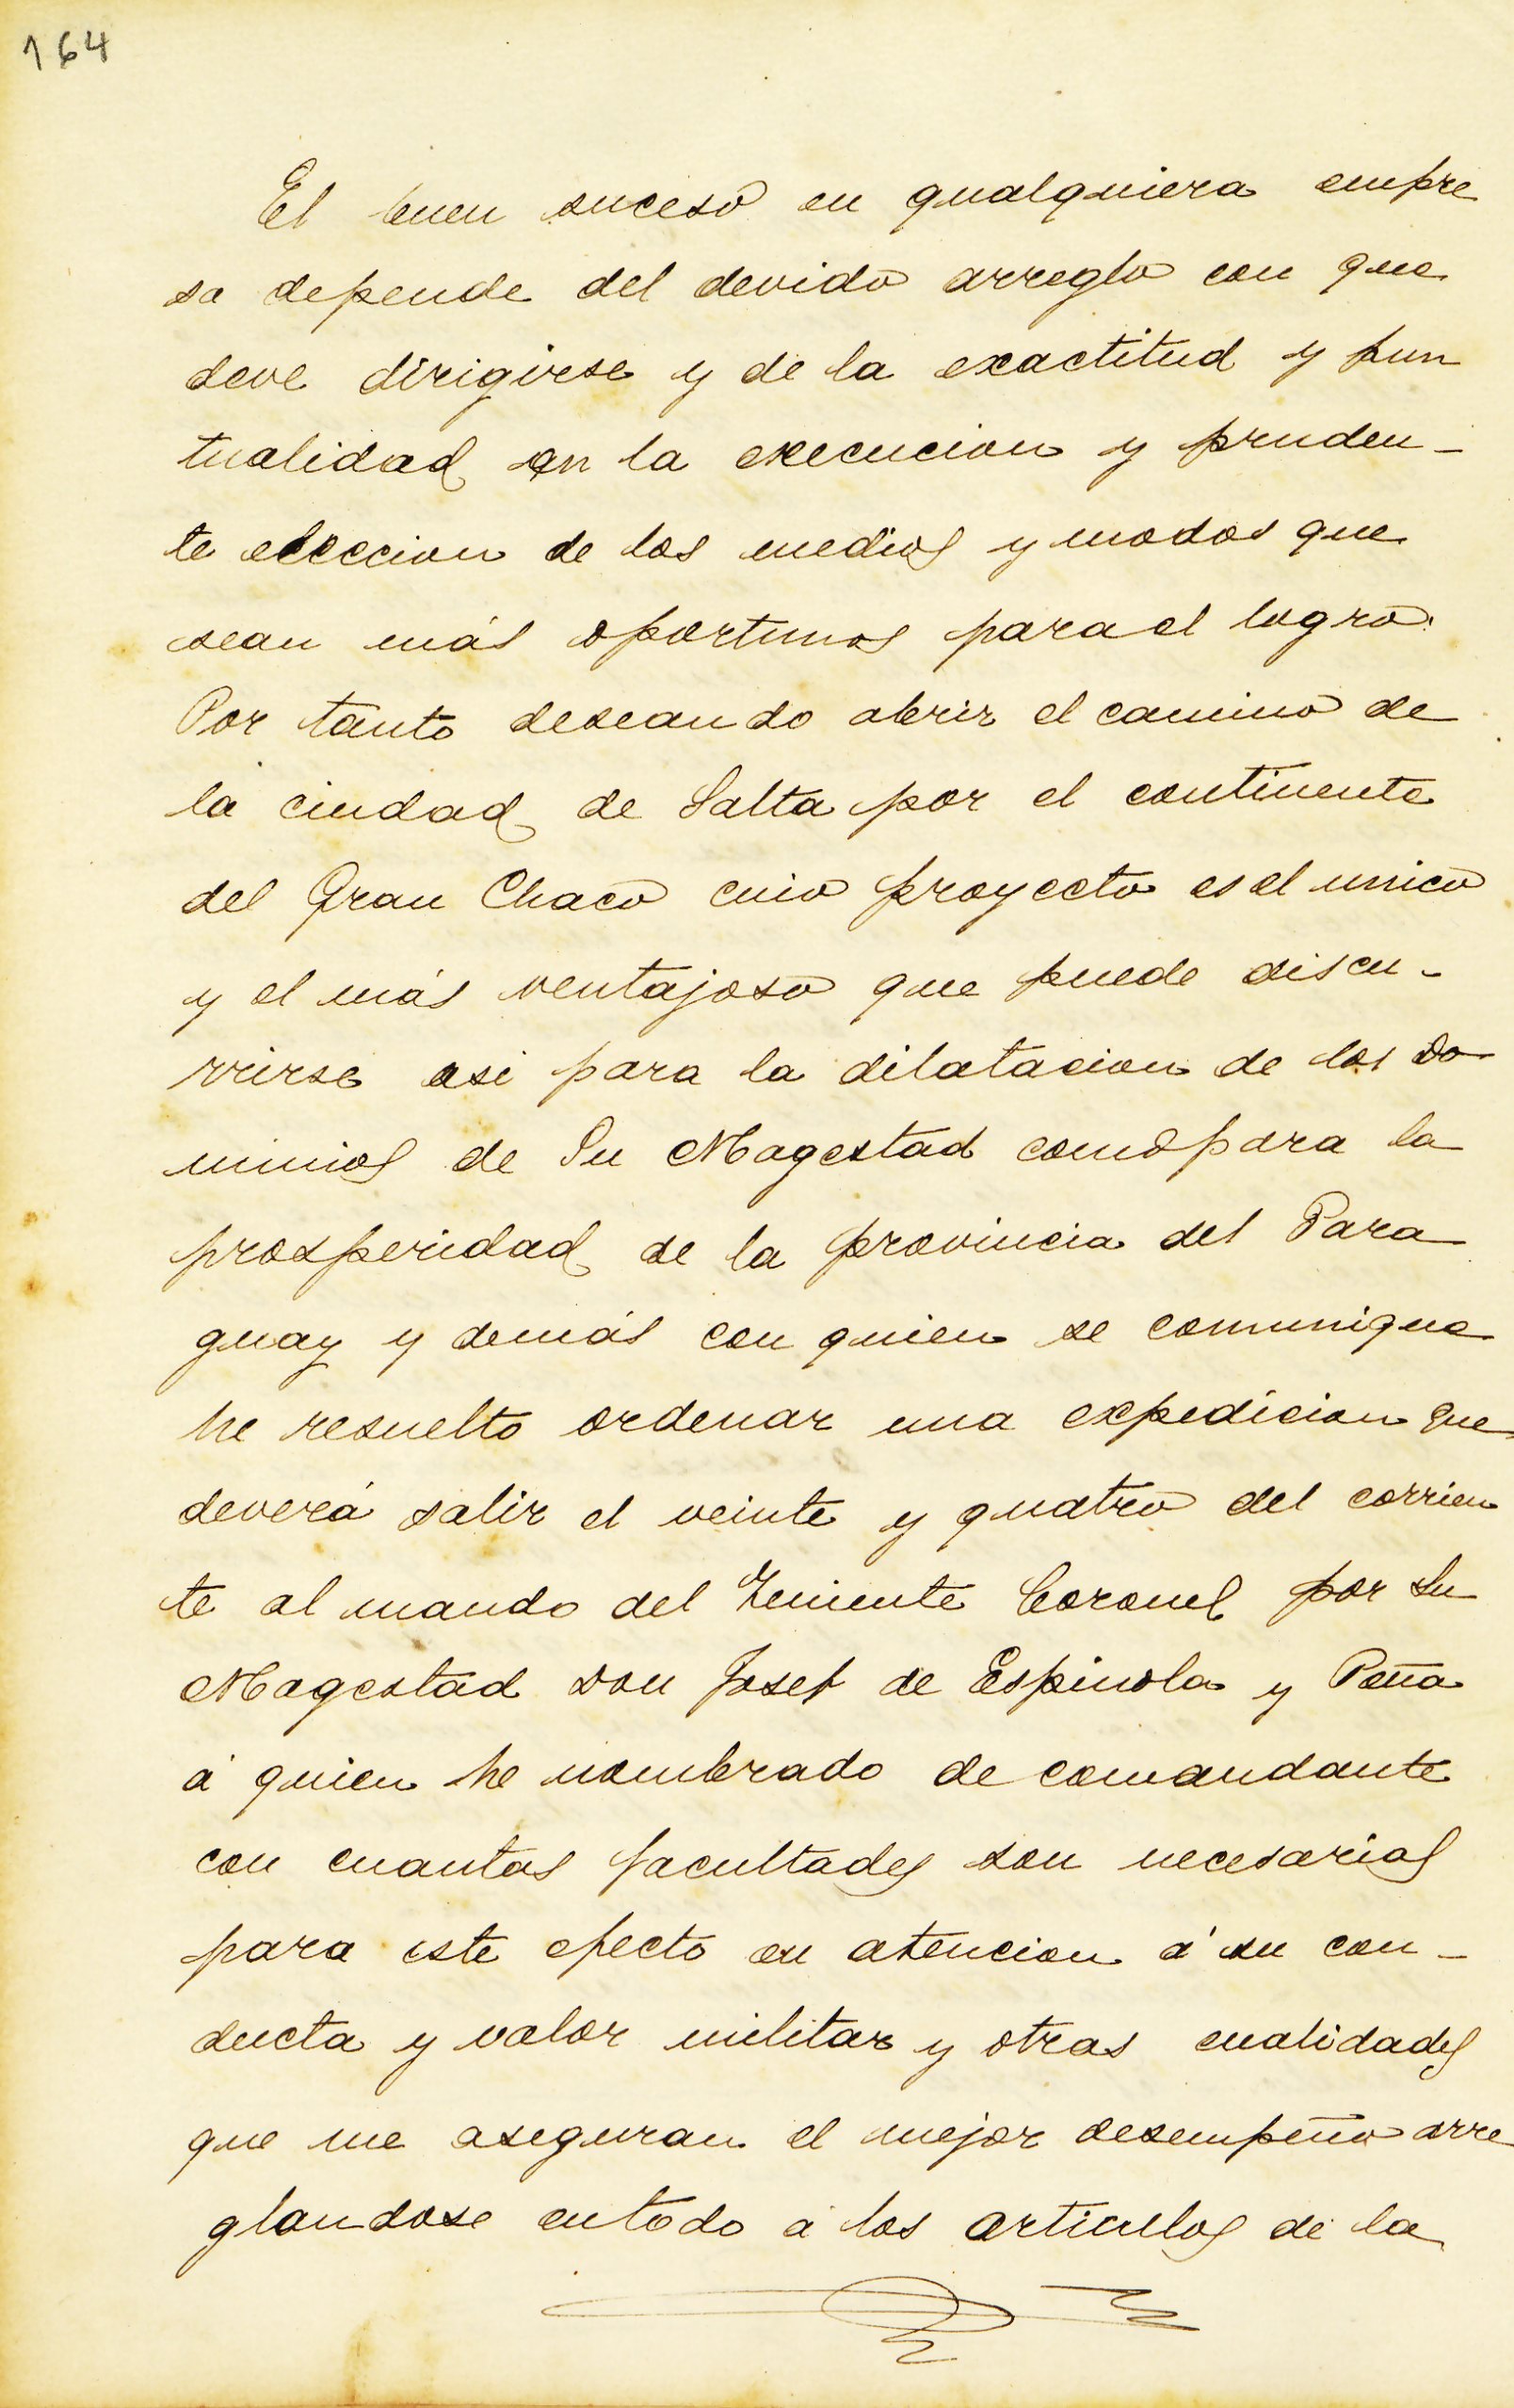 164
El buen suceso en qualquiera empre
sa depende del devido arreglo con que
deve dirigirse y de la exactitud y pun
tualidad en la execucion y pruden-
te eleccion de los medios y modos que
sean más oportunos para el logro.
Por tanto deseando abrir el camino de
la ciudad de Salta por el continente
del Gran Chaco cuio proyecto es el unico
y el más ventajoso que puede discu-
rrirse asi para la dilatacion de los Do
minios de Su Magestad como para la
prosperidad de la provincia del Para
guay y demás con quien se comunique
he resuelto ordenar una expedicion que
deverá salir el veinte y quatro del corrien
te al mando del Teniente Coronel por Su
Magestad Don Josef de Espinola y Peña
á quien he nombrado de comandante
con cuantas facultades son necesarias
para este efecto en atencion á su con-
ducta y valor militar y otras cualidades
que me aseguran el mejor desempeño arre
glandose en todo á los articulos de la